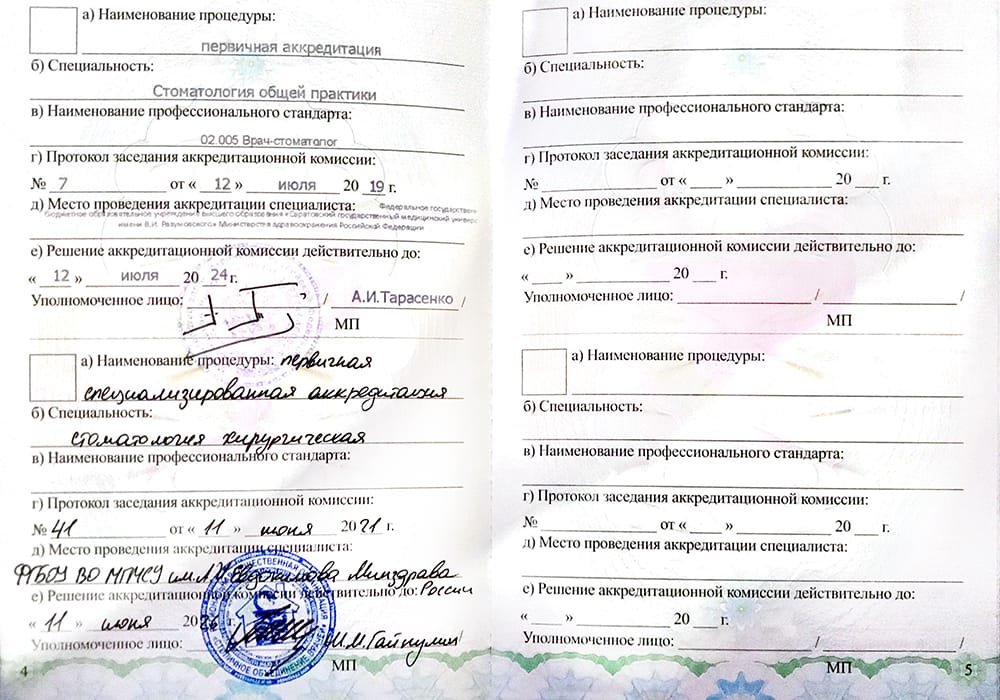 а) Наименование процедуры:
первичная аккредитация
б) Специальность:
Стоматология общей практики
в) Наименование профессионального стандарта:
02.005 Врач-стоматолог
г) Протокол заседания аккредитационной комиссии:
№ 7 от « 12 » июля 20 19 г.
д) Место проведения аккредитации специалиста: Федеральное государствен
бюджетное образовательное учреждение высшего образования «Саратовский государственный медицинский универс
имени В.И. Разумовского» Министерства здравоохранения Российской Федерации
е) Решение аккредитационной комиссии действительно до:
« 12 » июля 20 24 г.
Уполномоченное лицо: / А.И.Тарасенко /
МП
а) Наименование процедуры: первичная
специализированная аккредитация
б) Специальность:
стоматология хирургическая
в) Наименование профессионального стандарта:
г) Протокол заседания аккредитационной комиссии:
№ 41 от « 11 » июня 20 21 г.
д) Место проведения аккредитации специалиста:
ФГБОУ ВО МГМСУ им. А.И. Евдокимова Минздрава
е) Решение аккредитационной комиссии действительно до: России
« 11 » июня 20
Уполномоченное лицо:
МП
4
а) Наименование процедуры:
б) Специальность:
в) Наименование профессионального стандарта:
г) Протокол заседания аккредитационной комиссии:
№ от « » 20 г.
д) Место проведения аккредитации специалиста:
е) Решение аккредитационной комиссии действительно до:
« » 20 г.
Уполномоченное лицо: / /
МП
а) Наименование процедуры:
б) Специальность:
в) Наименование профессионального стандарта:
г) Протокол заседания аккредитационной комиссии:
№ от « » 20 г.
д) Место проведения аккредитации специалиста:
е) Решение аккредитационной комиссии действительно до:
« » 20 г.
Уполномоченное лицо: / /
МП
5